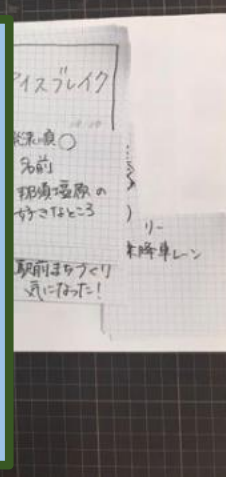 アイスブレイク
名前
那須塩原の
好きなところ
駅前まちづくり
気になった！
リー
乗降車レーン